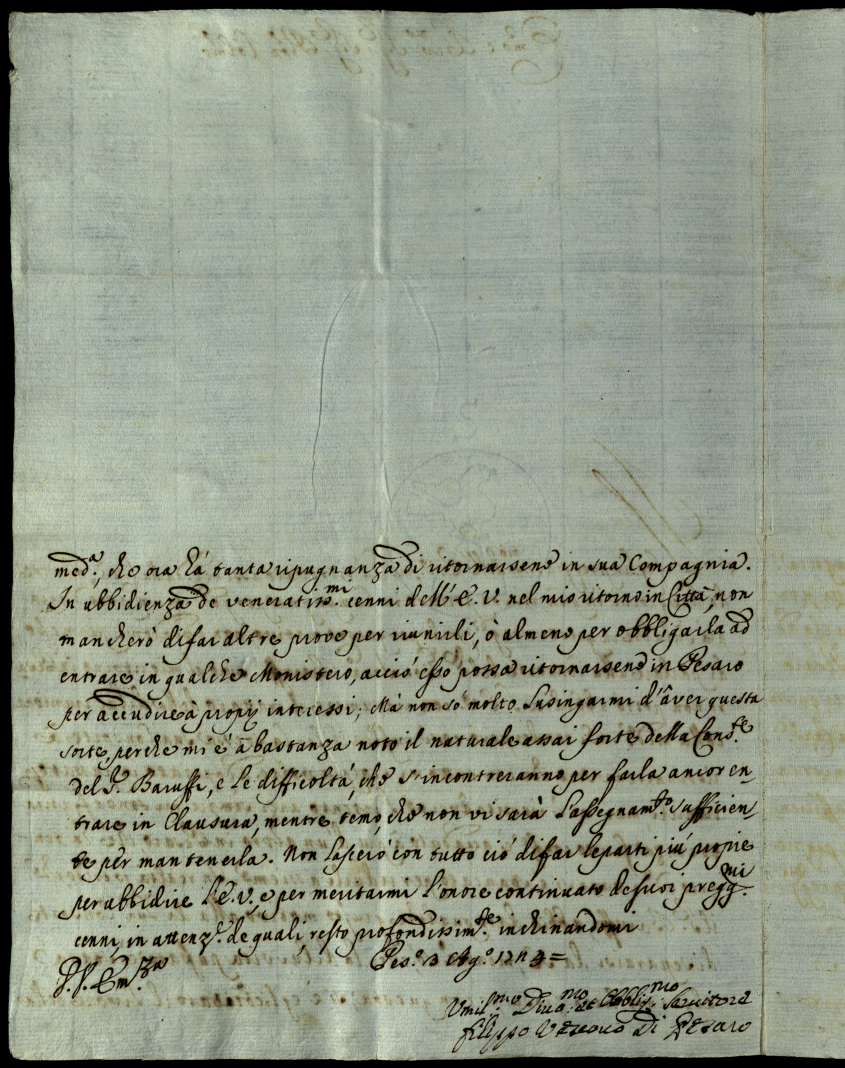 med.ª, che ora hà tanta ripugnanza di ritornarsene in sua Compagnia.
In ubbidienza de veneratiss.mi cenni dell'E.V. nel mio ritorno in Città, non
mancherò di far altre prove per riunirli, ò almeno per obbligarla ad
entrare in qualche Monistero, acciò esso possa ritornarsene in Pesaro
per accudire à proprj interessi; Mà non sò molto lusingarmi d'àver questa
sorte, perche mi e' à bastanza noto il naturale assai forte della Cons.te
del S.r Baruffi, e le difficoltà, che s'incontreranno per farla ancor en
trare in Clausura, mentre temo, che non vi sarà l'assegnam.to sufficien
te per mantenerla. Non lascerò con tutto ciò di far le parti più proprie
per ubbidire l'E.V. e per meritarmi l'onore continuato de suoi pregg.mi
cenni, in attenz.e de quali, resto profondissim.te inchinandomi
Pes.o 3 Ag.o
Umil.mo Div.mo et Obblig.mo Servitore
Filippo Vescovo di Pesaro